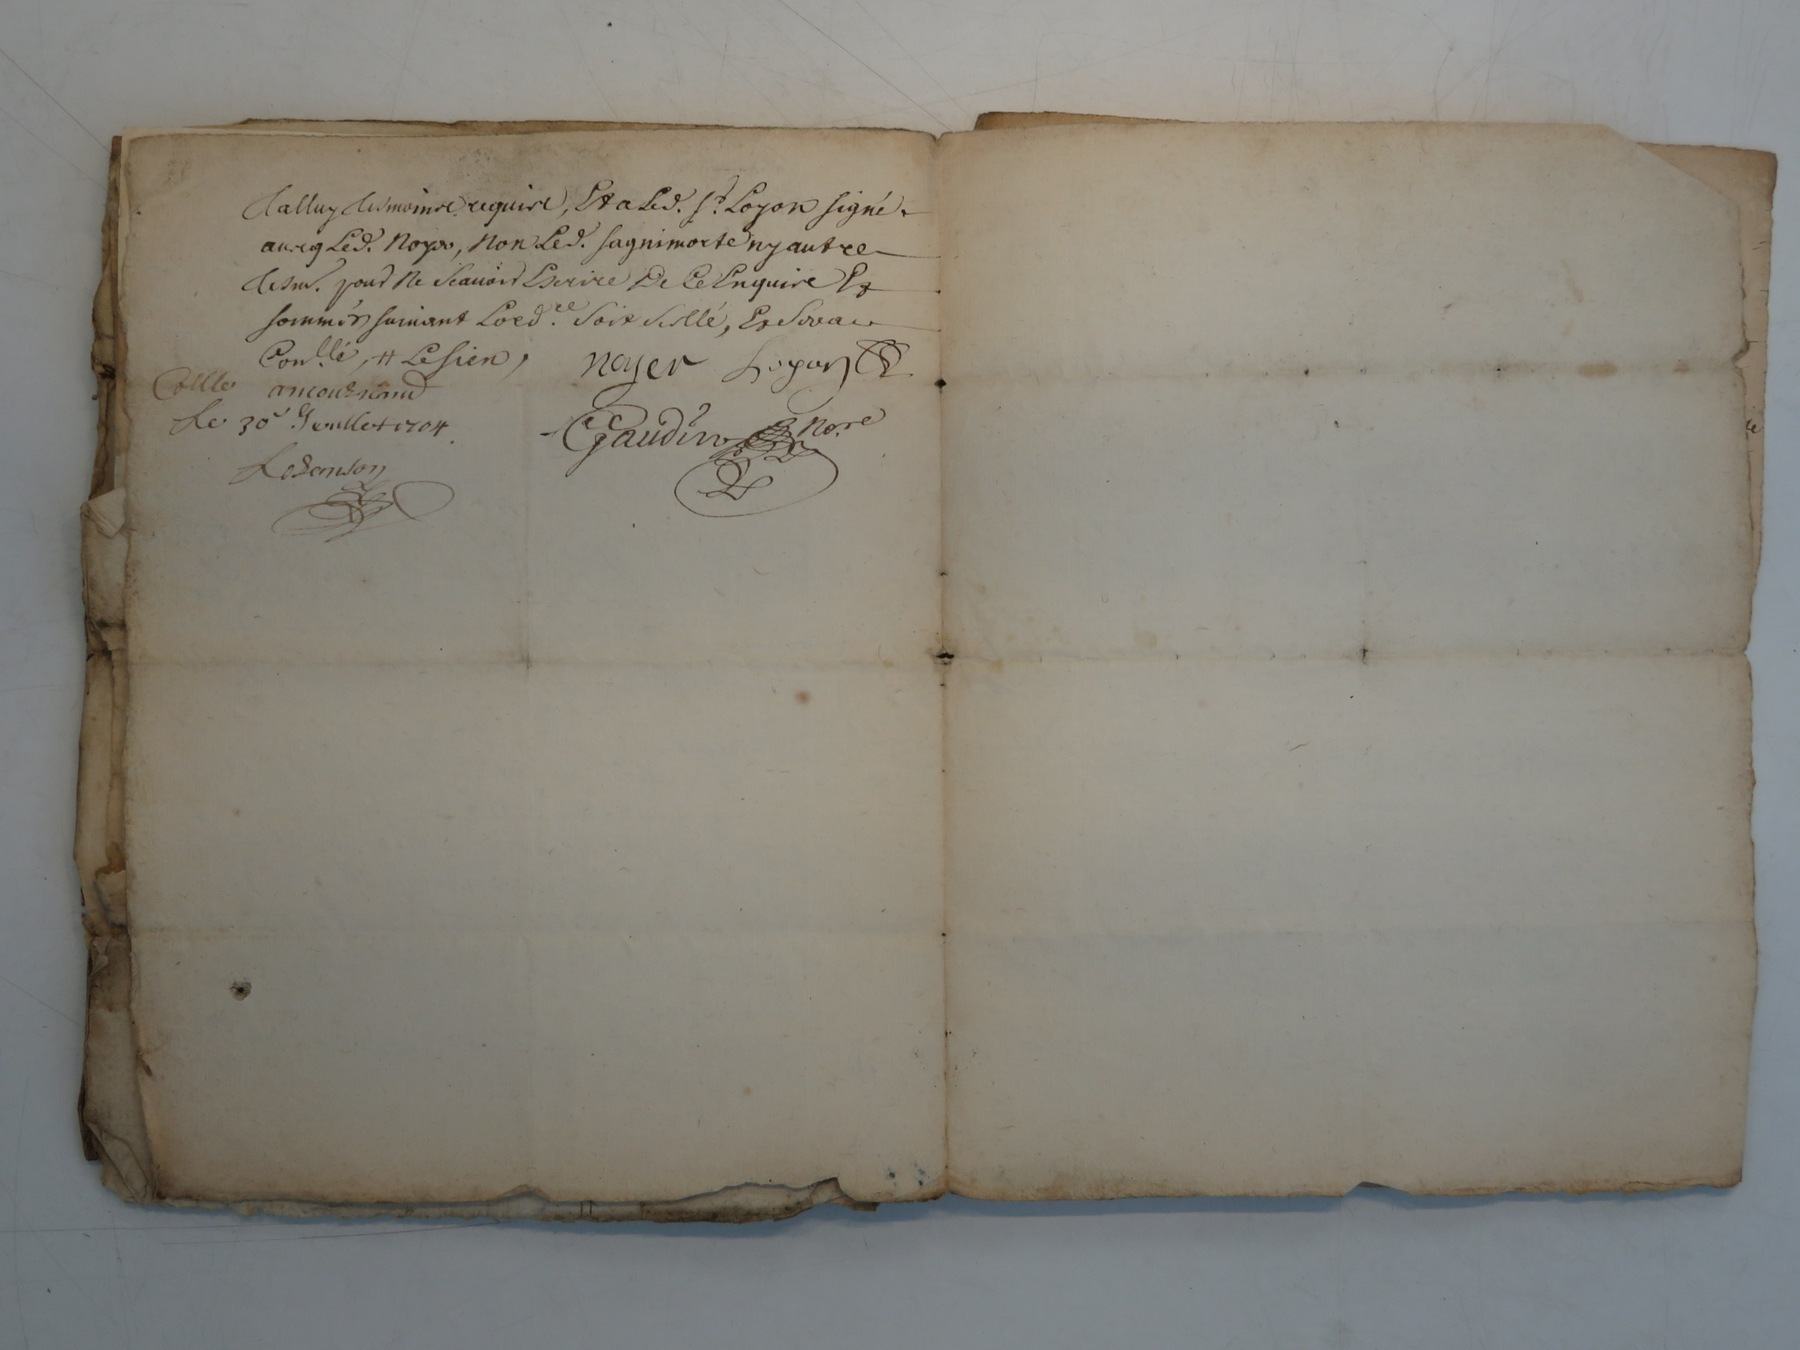 dalluy tesmoins requis, Et a Led. Sr. Loyon signé
avecq Led. Noyer, Non Led. sagnimorte ny autre
tesm. pour Ne scavoir Escrire De Ce Enquis Et
sommés suivant Lord.ce Soit scellé, Et Sera
Con.llé, # Le sien,
noyer Loyon
Con.llé
Le 30e Juillet 1704
Gaudin No.re